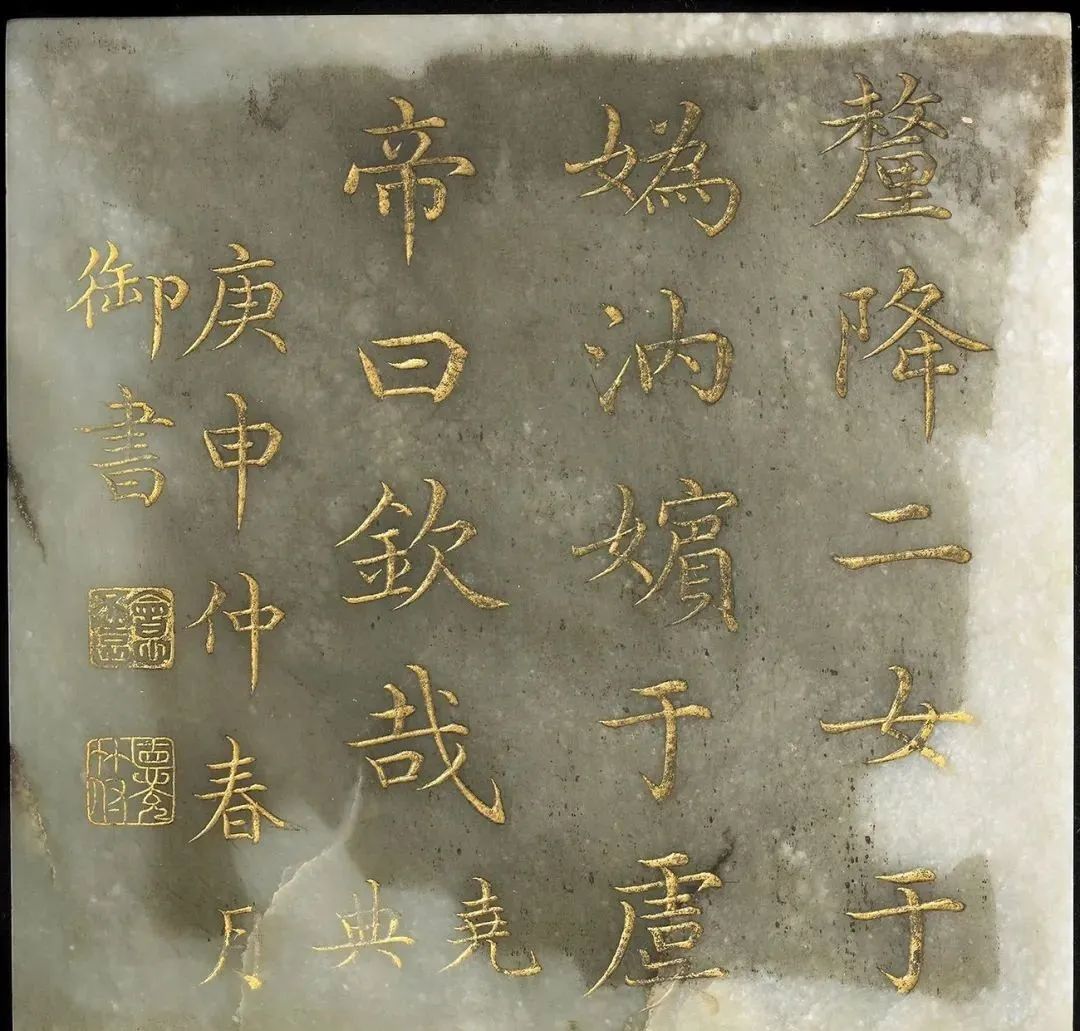 釐降二女于
媯汭嬪于虞
帝曰欽哉
堯典
庚申仲春月
御書